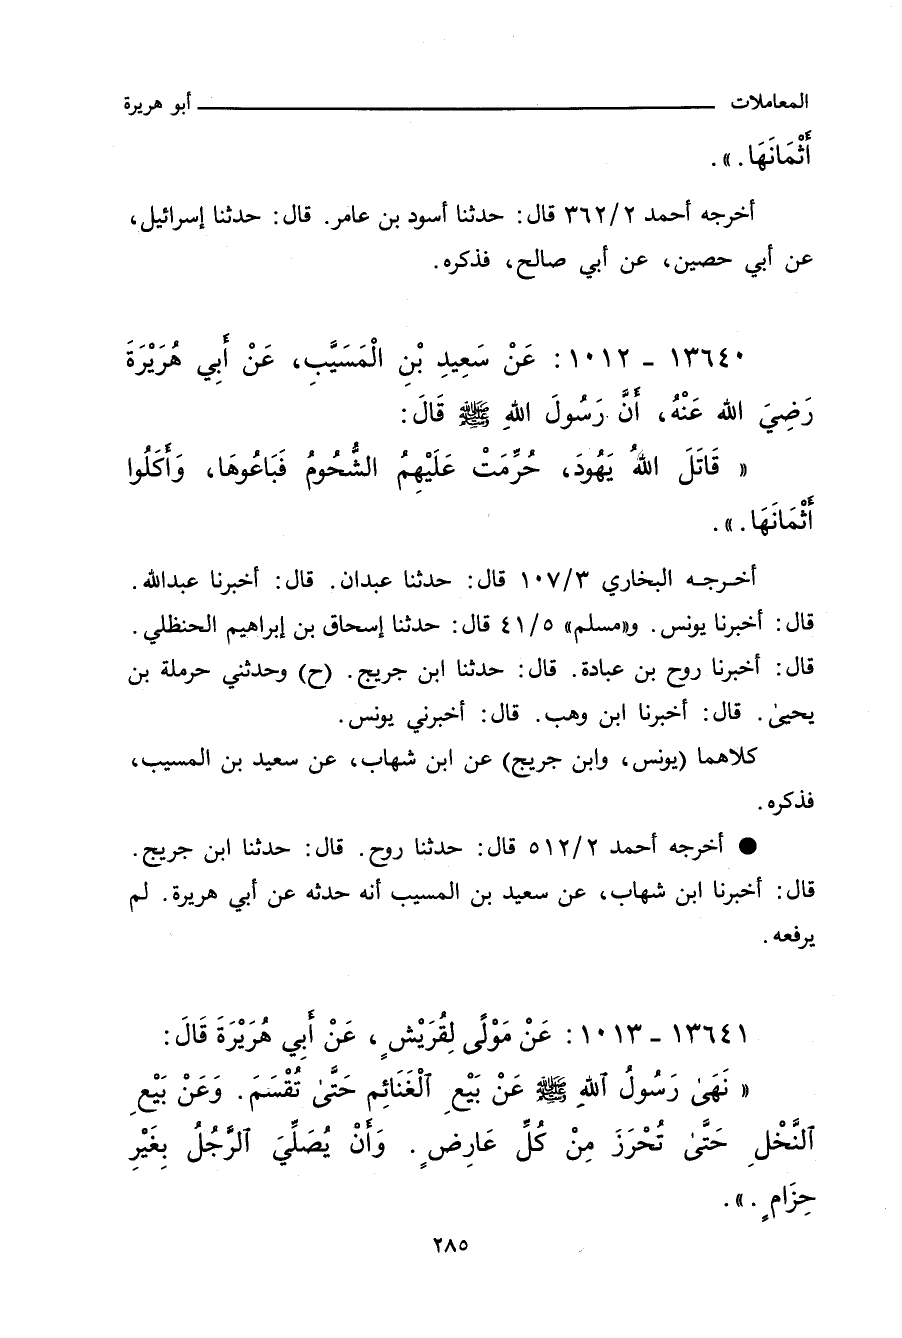 المعاملات ــــــــــــــــــــــــــــــــــــــــ أبو هريرة
أَثْمَانَهَا.».
أخرجه أحمد ٣٦٢/٢ قال: حدثنا أسود بن عامر. قال: حدثنا إسرائيل،
عن أبي حصين، عن أبي صالح، فذكره.
١٣٦٤٠ - ١٠١٢: عَنْ سَعِيدِ بْنِ الْمَسَيَّبِ، عَنْ أَبِي هُرَيْرَةَ
رَضِيَ الله عَنْهُ، أَنَّ رَسُولَ اللهِ ﷺ قَالَ:
« قَاتَلَ اللهُ يَهُودَ، حُرِّمَتْ عَلَيْهِمُ الشُّحُومُ فَبَاعُوهَا، وَأَكَلُوا
أَثْمَانَهَا.».
أخرجه البخاري ١٠٧/٣ قال: حدثنا عبدان. قال: أخبرنا عبدالله.
قال: أخبرنا يونس. و«مسلم» ٤١/٥ قال: حدثنا إسحاق بن إبراهيم الحنظلي.
قال: أخبرنا روح بن عبادة. قال: حدثنا ابن جريج. (ح) وحدثني حرملة بن
يحيىٰ. قال: أخبرنا ابن وهب. قال: أخبرني يونس.
كلاهما (يونس، وابن جريج) عن ابن شهاب، عن سعيد بن المسيب،
فذكره.
● أخرجه أحمد ٥١٢/٢ قال: حدثنا روح. قال: حدثنا ابن جريج.
قال: أخبرنا ابن شهاب، عن سعيد بن المسيب أنه حدثه عن أبي هريرة. لم
يرفعه.
١٣٦٤١ - ١٠١٣: عَنْ مَوْلًى لِقُرَيْشٍ، عَنْ أَبِي هُرَيْرَةَ قَالَ:
« نَهَىٰ رَسُولُ ٱللهِ ﷺ عَنْ بَيْعِ ٱلْغَنَائِمِ حَتَّىٰ تُقْسَمَ. وَعَنْ بَيْعِ
ٱلنَّخْلِ حَتَّىٰ تُحْرَزَ مِنْ كُلِّ عَارِضٍ. وَأَنْ يُصَلِّيَ ٱلرَّجُلُ بِغَيْرِ
حِزَامٍ.».
٢٨٥